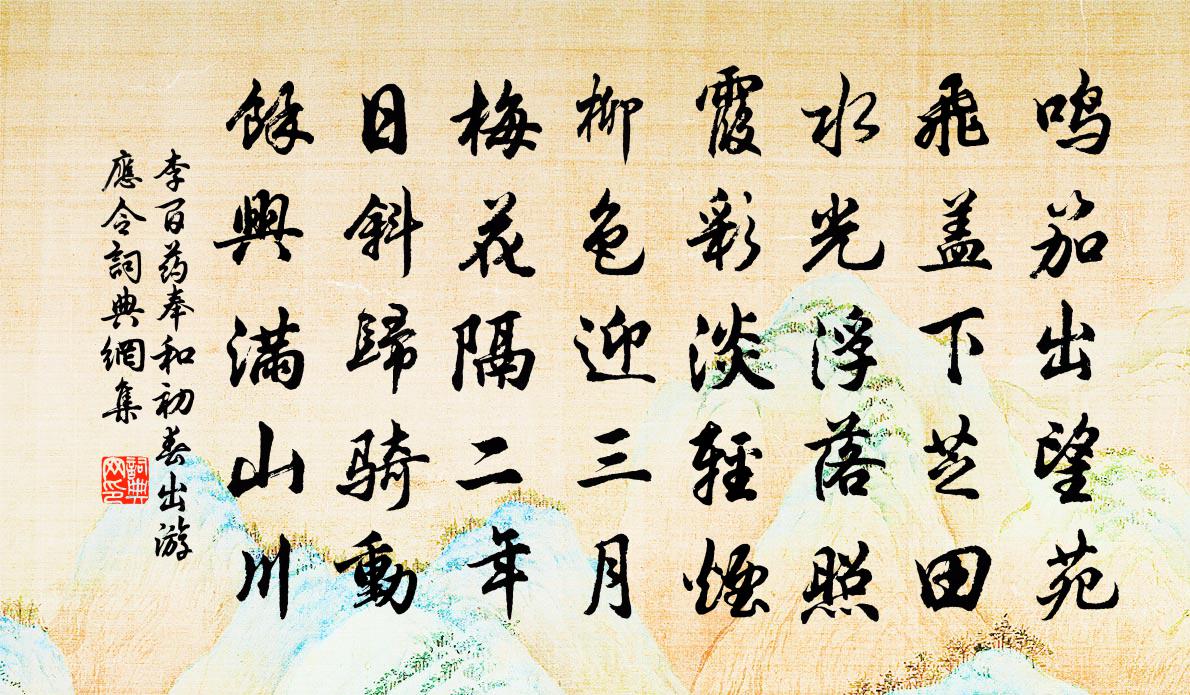 鸣笳出望苑
飛盖下芝田
水光浮落照
霞彩淡輕煙
柳色迎三月
梅花隔二年
日斜歸骑動
餘興满山川
李百药奉和初春出游
應令詞典網集
詞典
网印